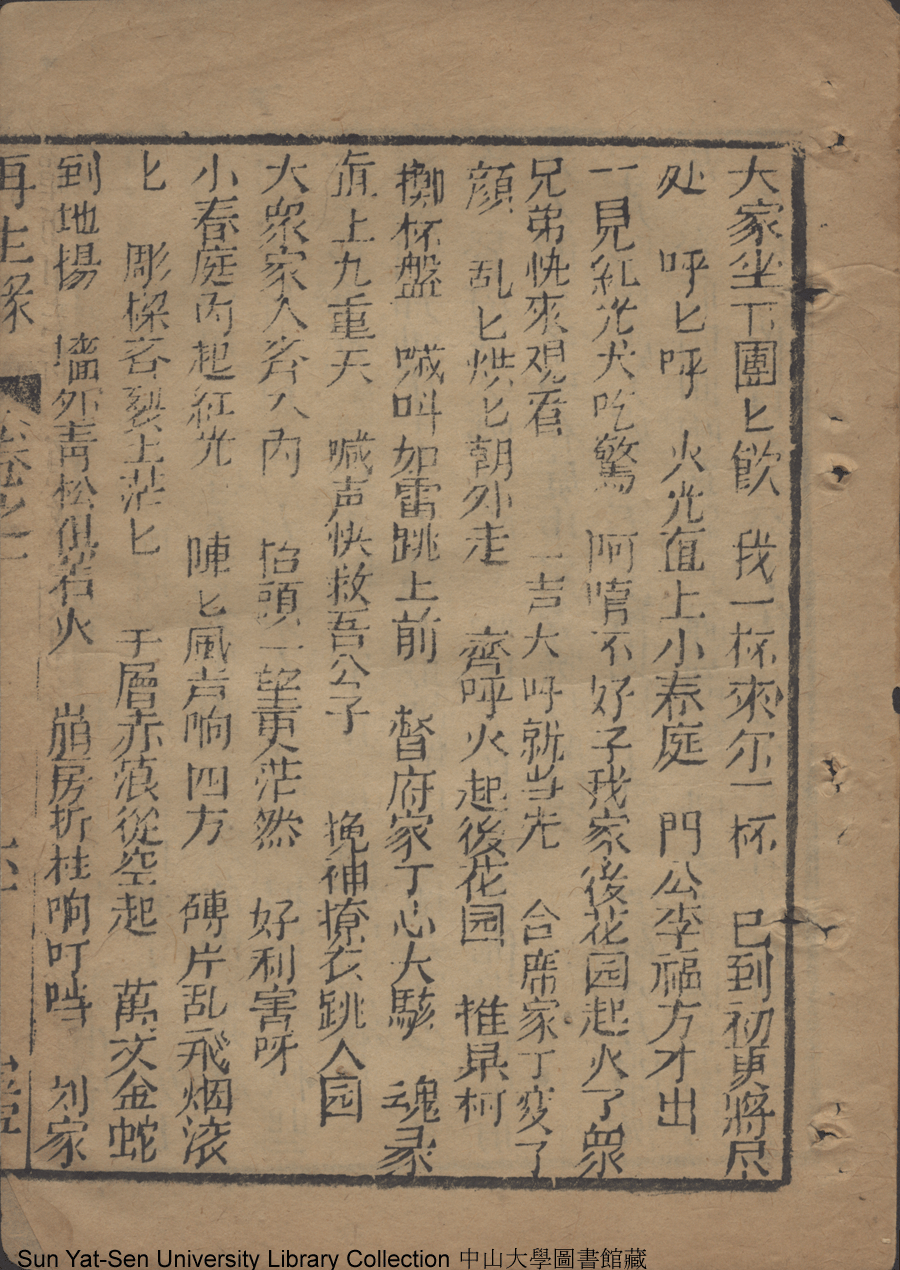 大家坐下團匕飲 我一杯來尔一杯 已到初更將尽
处 呼匕呼 火光直上小春庭 門公李福方才出
一見紅光大吃驚 阿唷不好子我家後花园起火了衆
兄弟快來观看 一声大呼就当先 合席家丁变了
顔 乱匕烘匕朝外走 齊呼火起後花园 推桌椅
擲杯盤 喊叫如雷跳上前 督府家丁心大駭 魂灵
直上九重天 喊声快救吾公子 挽袖撩衣跳入园
大衆家人齐入內 抬頭一望更茫然 好利害呀
小春庭內起紅光 陣匕風声响四方 磚片乱飛烟滚
匕 彫樑吝裂土茫匕 千層赤浪從空起 萬丈金蛇
到地揚 墻外青松俱若火 崩房折柱响叮噹 刘家
再生緣 卷之一
Sun Yat-Sen University Library Collection 中山大學圖書館藏